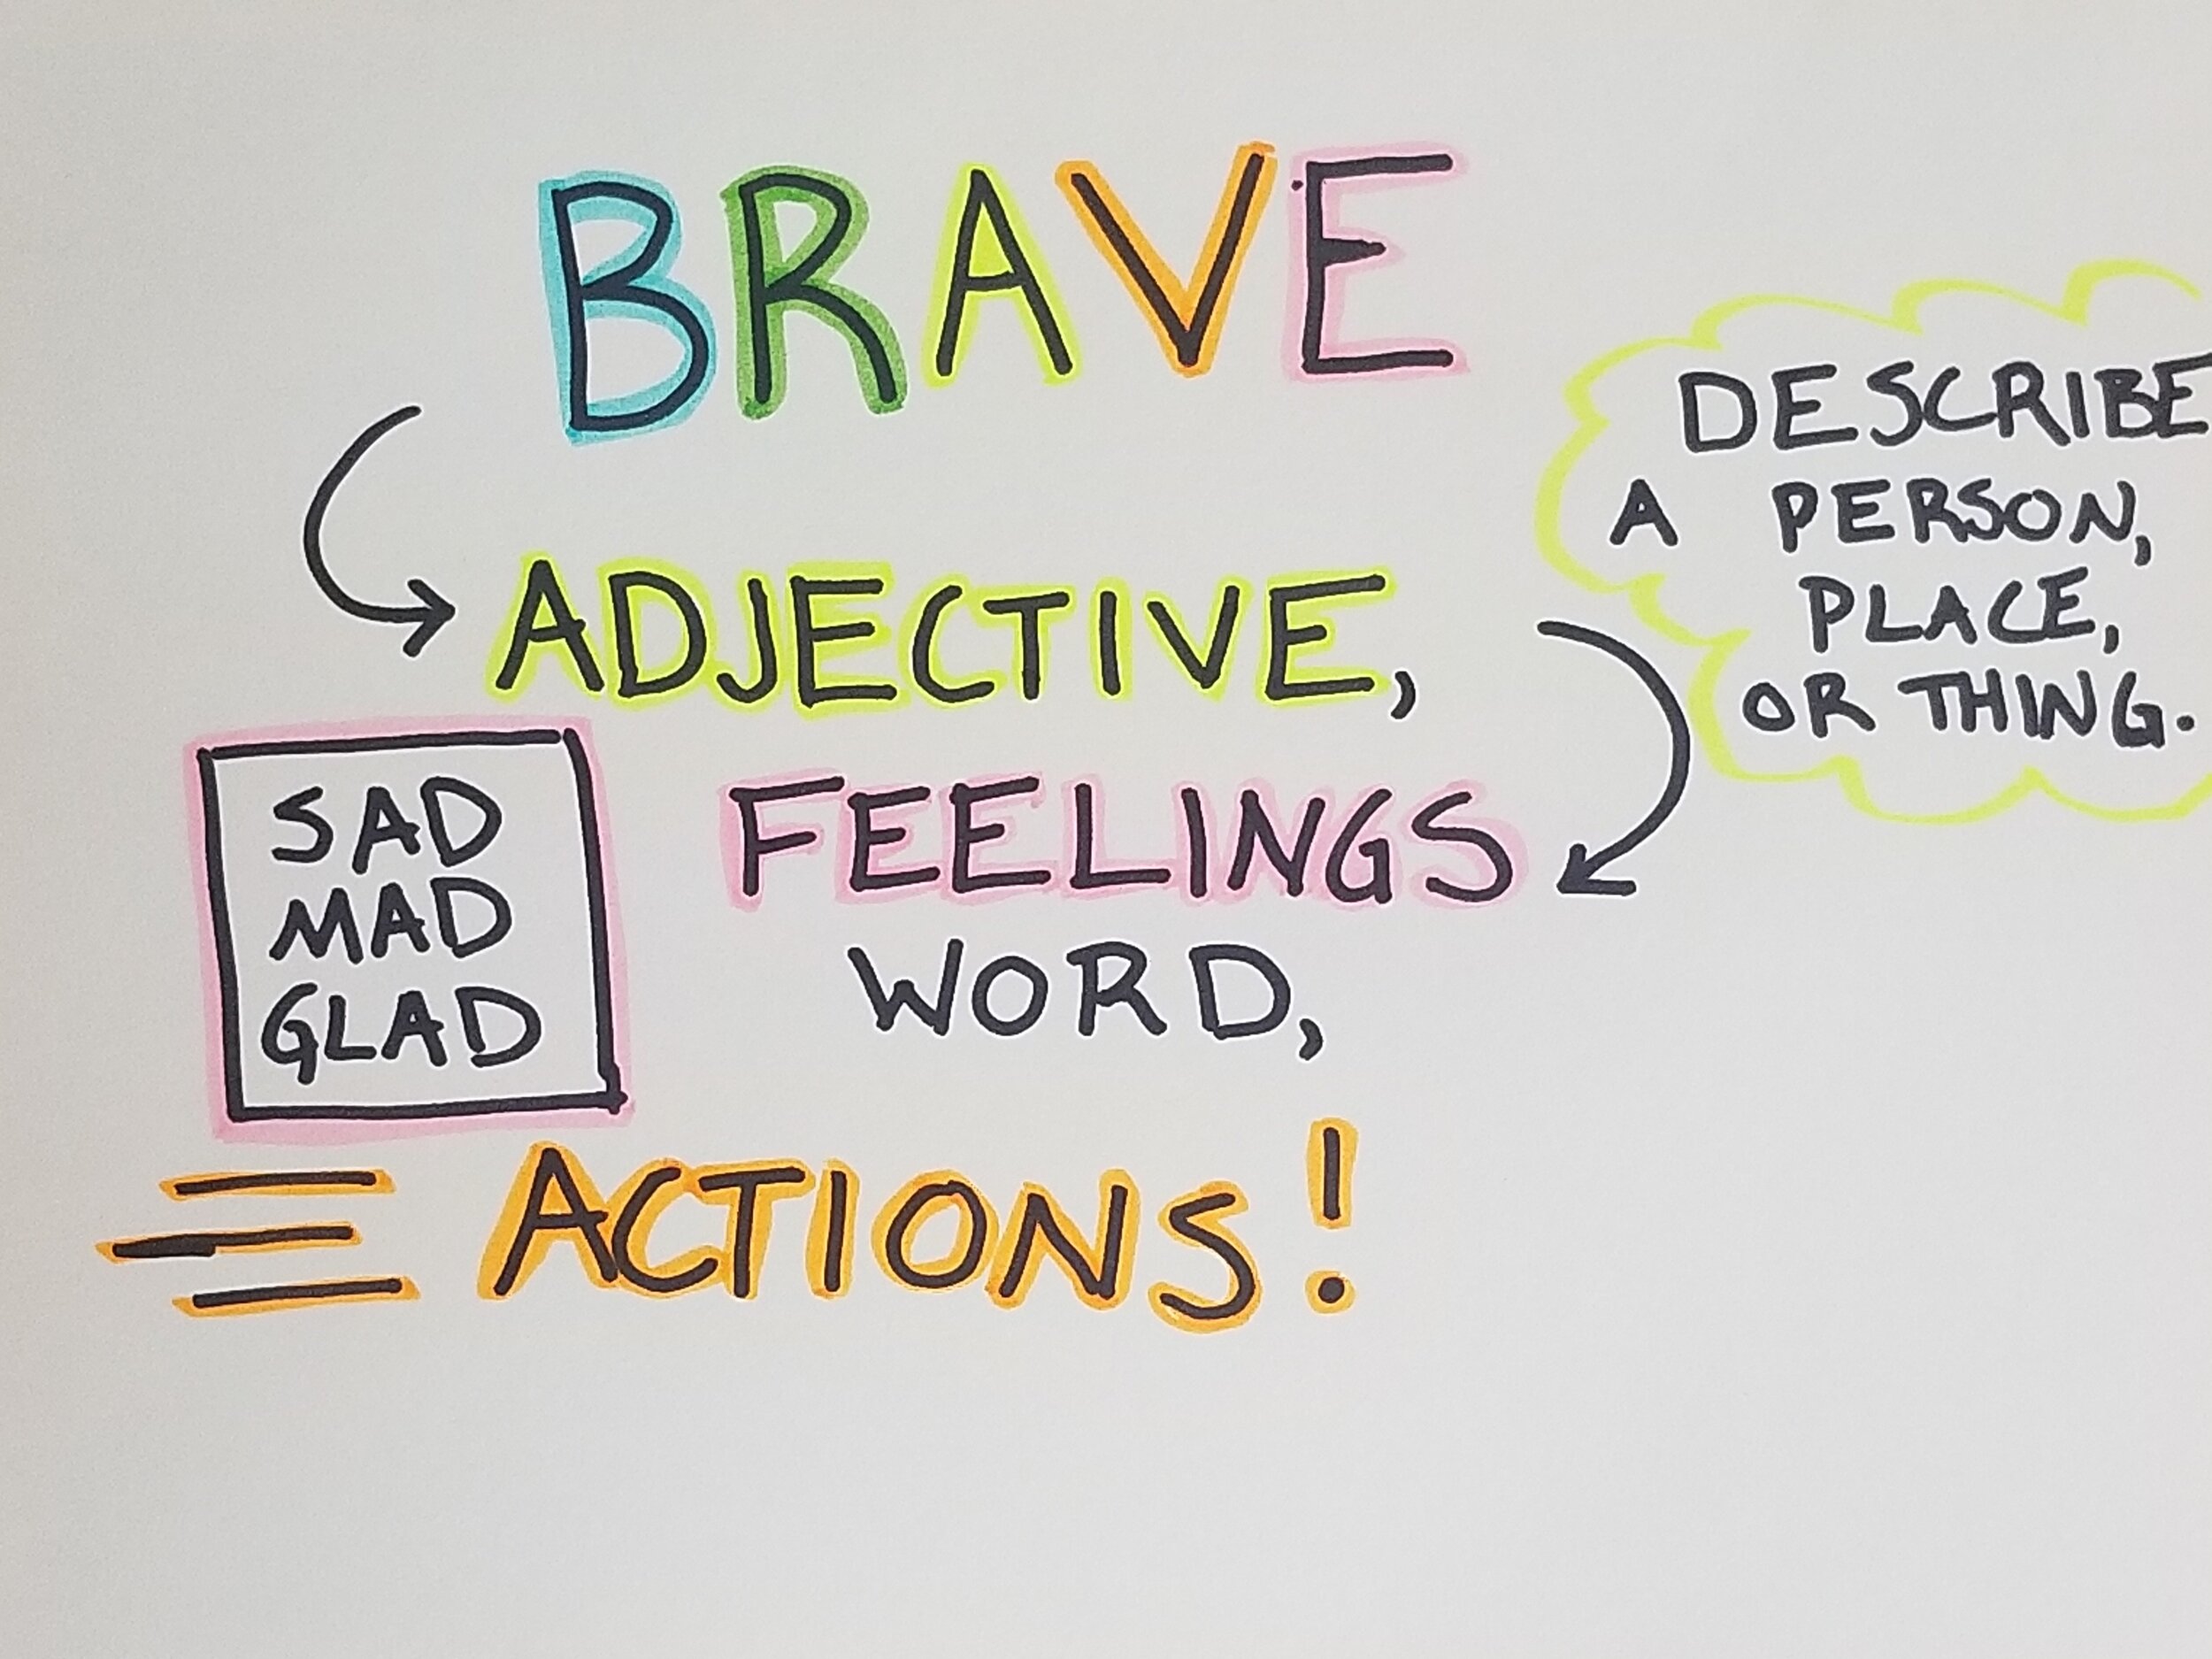 BRAVE
DESCRIBE
A PERSON,
PLACE,
OR THING.
ADJECTIVE,
SAD
MAD
GLAD
FEELINGS
WORD,
ACTIONS!